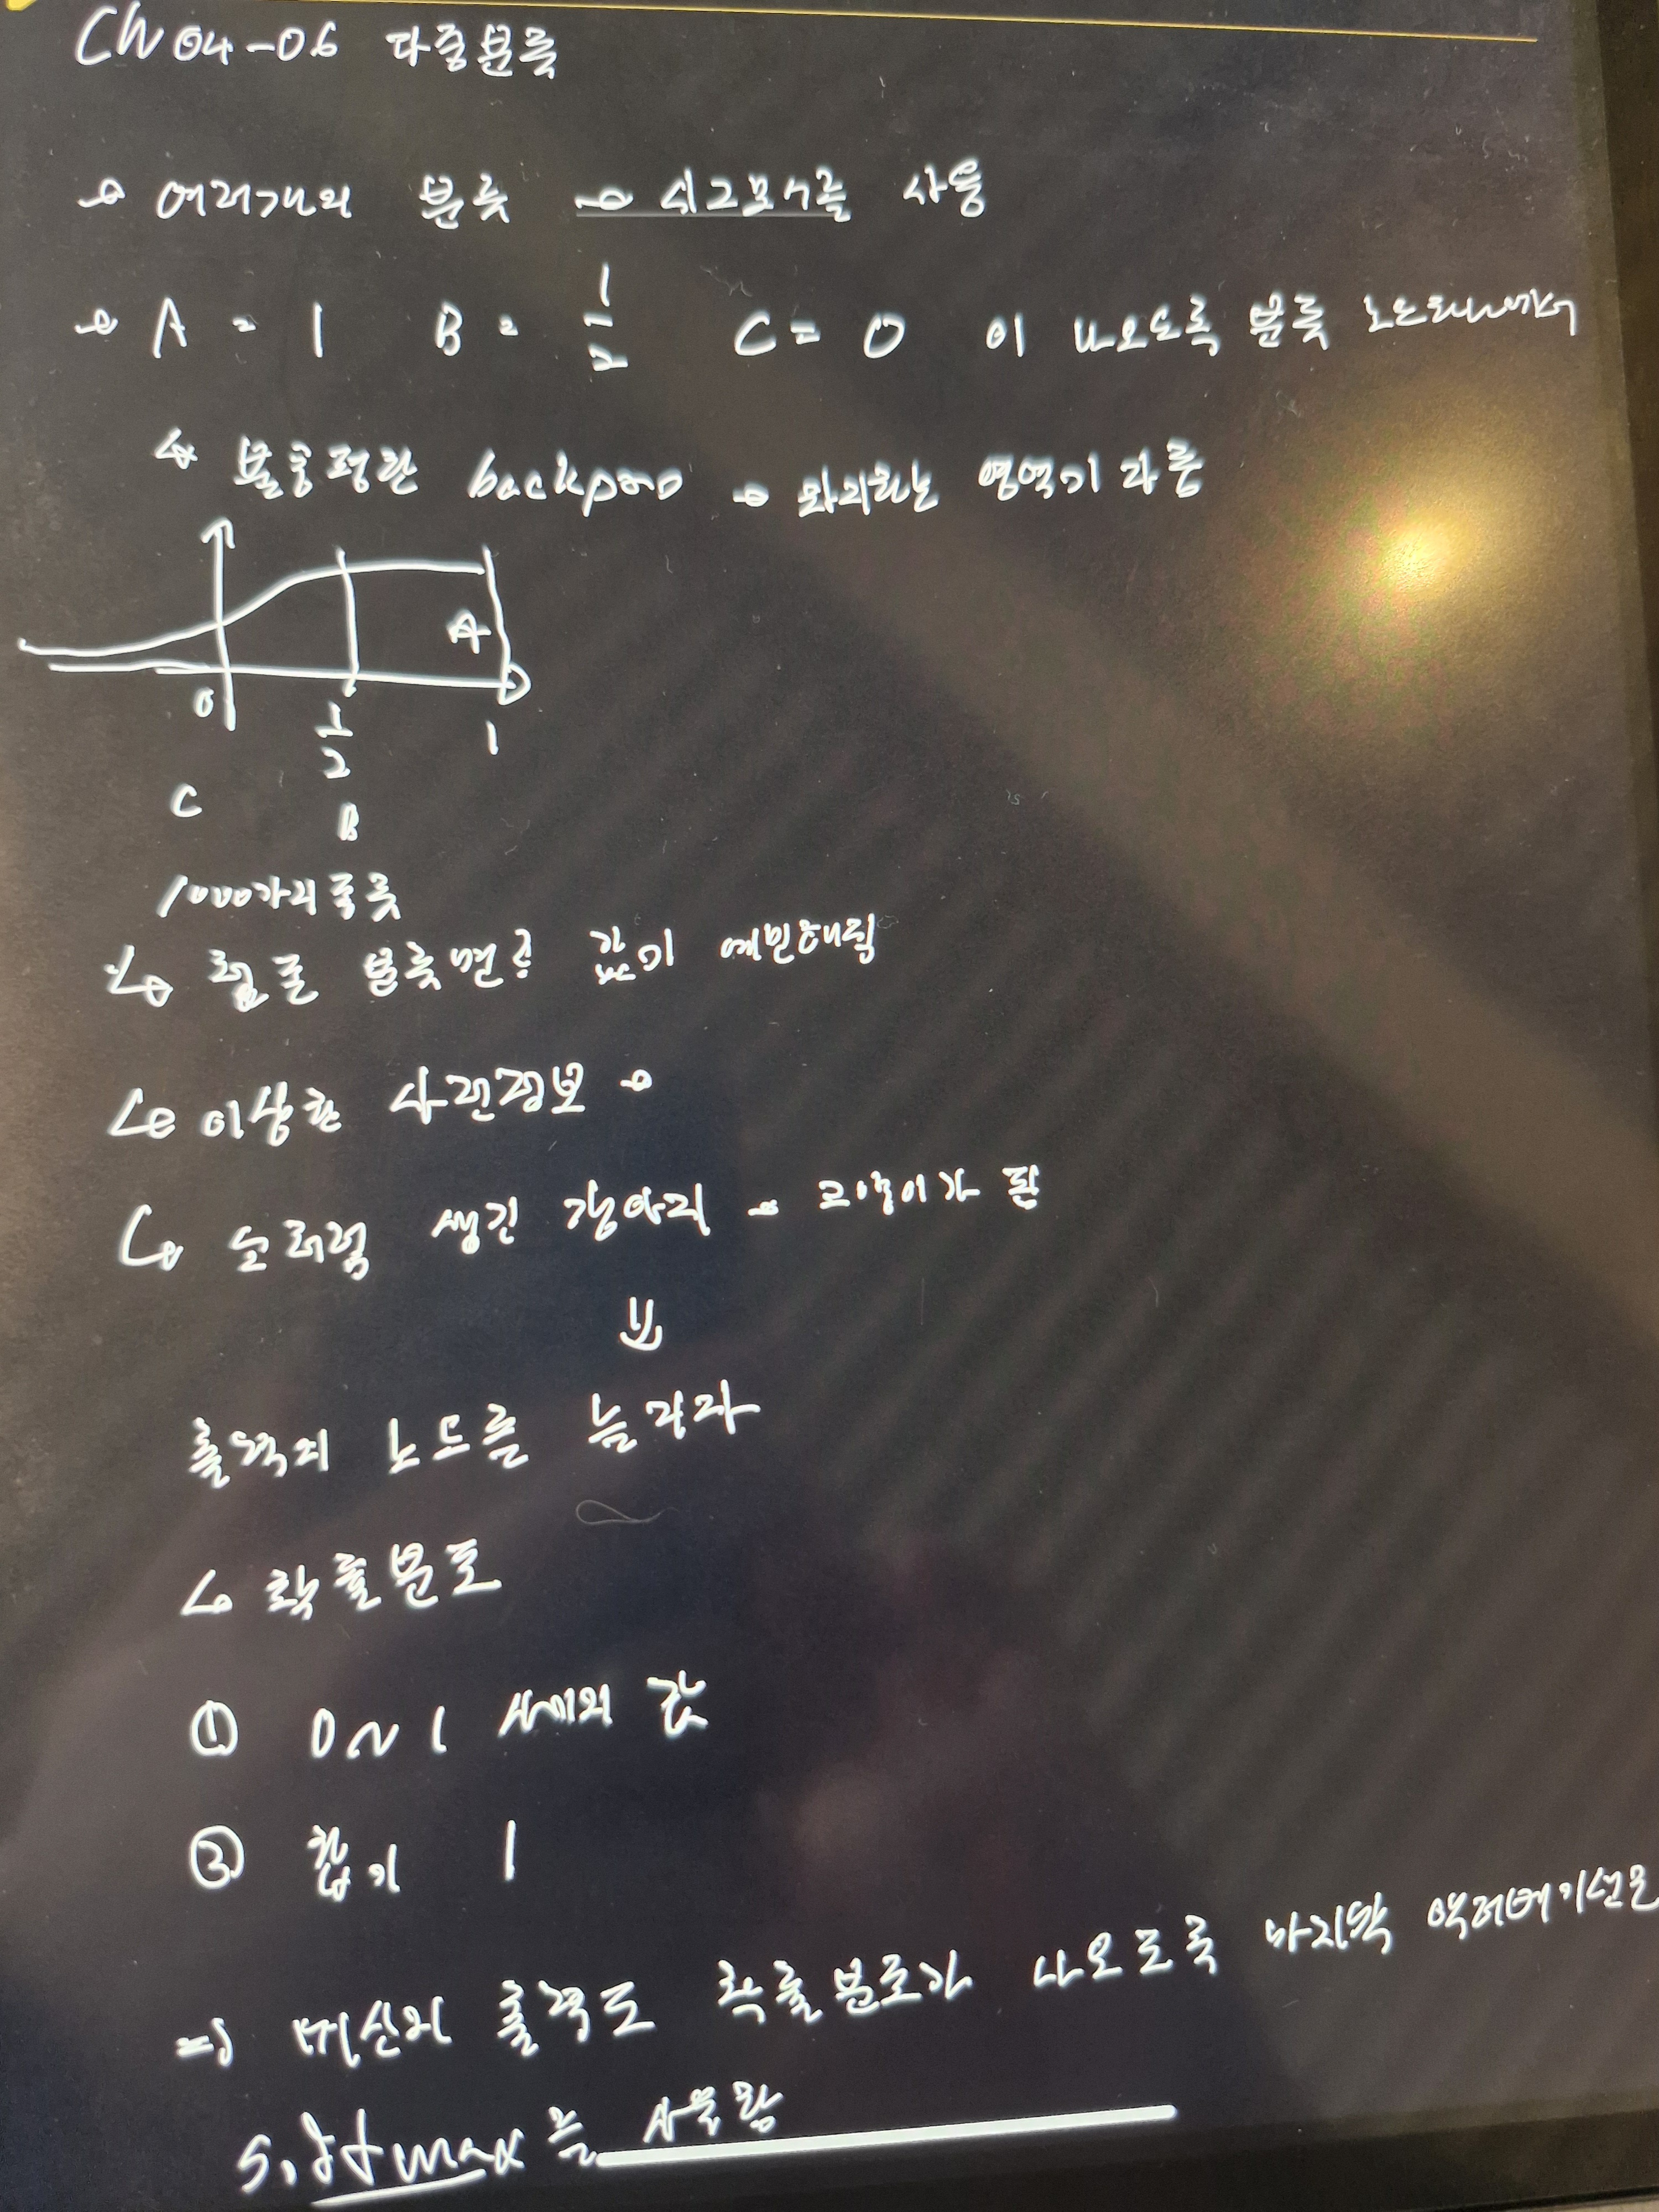 Ch 04-06 다중분류
여러개의 분류 → 시그모이드를 사용
A = 1 B = 1/2 C = 0 이 나오도록 분류
불공평한 backpro → 차지하는 영역이 다름
A
0 1/2 1
C B
1000가지 종류
값이 예민해짐
이상한 사전정보 →
소처럼 생긴 강아지 → 고양이가 됨
⇓
출력의 노드를 늘리자
확률분포
① 0~1 사이의 값
② 합이 1
⇒ 머신의 출력도 확률분포가 나오도록 마지막 액티베이션을
softmax를 사용함